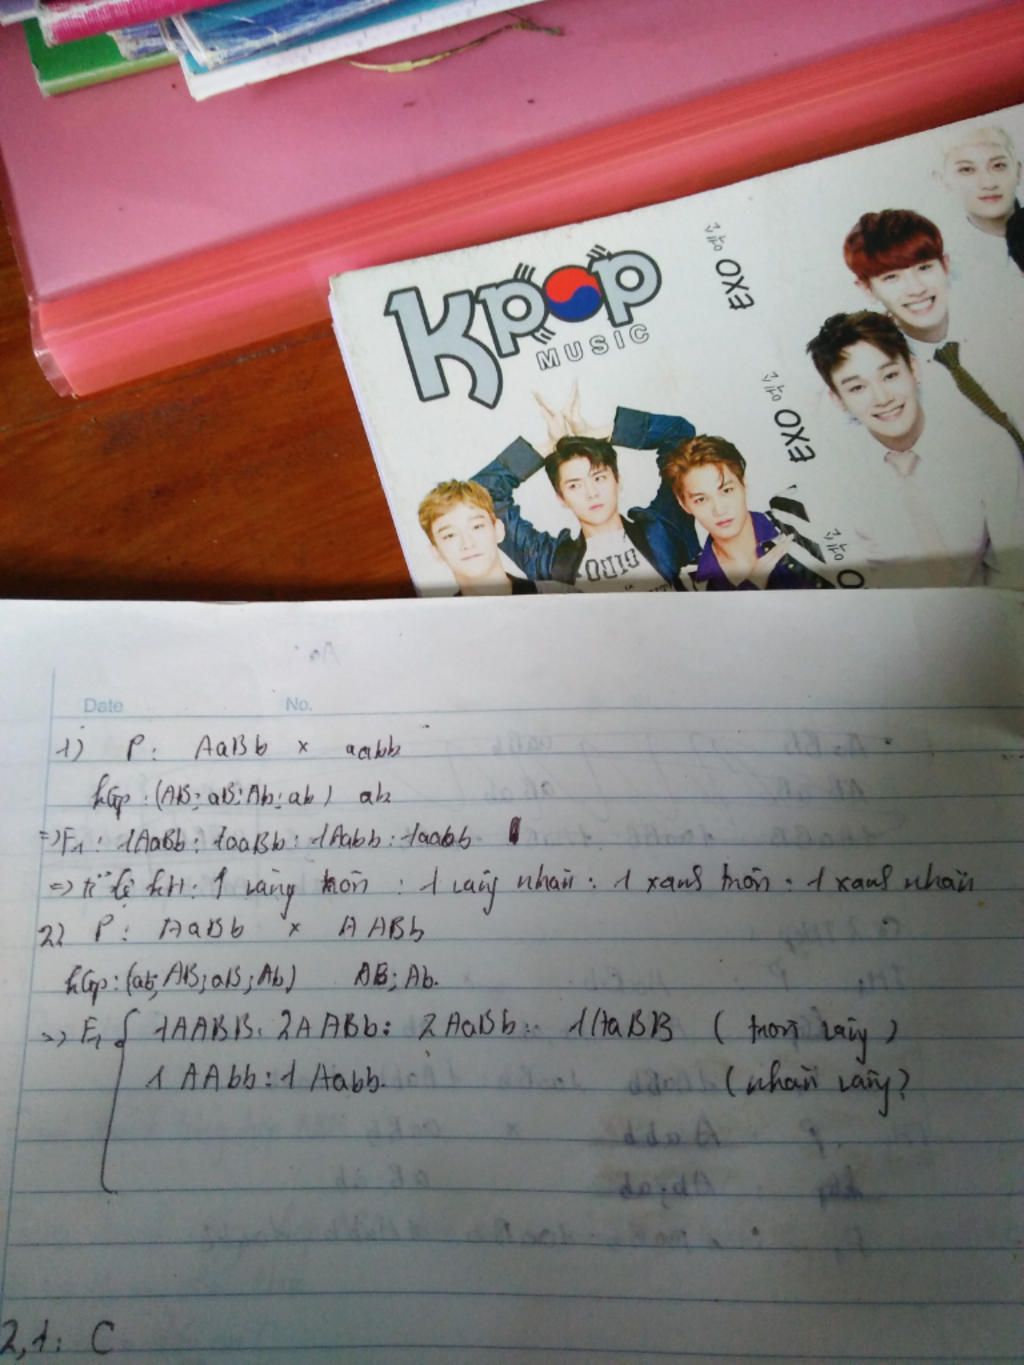 Kpop
MUSIC
EXO
EXO
Date No.
1) P: AaBb x aabb
(AB; aB; Ab; ab) ab
=> F1: 1AaBb: 1aaBb: 1Aabb: 1aabb
=> KH: 1 vàng trơn : 1 vàng nhăn : 1 xanh trơn : 1 xanh nhăn
2) P: AaBb x AABb
(ab; AB; aB; Ab) AB; Ab.
=> F1 { 1AABB: 2AABb: 2AaBb: 1AaBB (trơn vàng)
1 AAbb: 1 Aabb. (nhăn vàng)
2,1: C